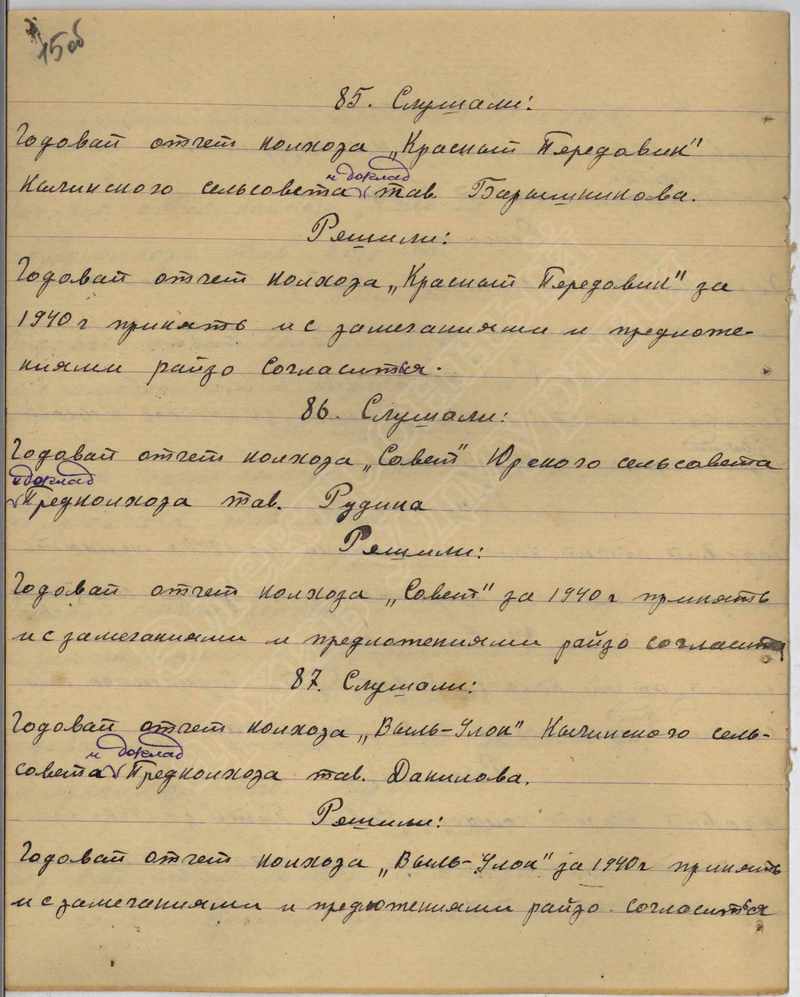 15 об
85. Слушали:
Годовой отчет колхоза „Красный Передовик"
Кычинского сельсовета и доклад тов. Барышникова.
Решили:
Годовой отчет колхоза „Красный Передовик" за
1940 г принять и с замечаниями и предложе-
ниями райзо согласиться.
86. Слушали:
Годовой отчет колхоза „Совет" Юрского сельсовета
и доклад Предколхоза тов. Рудина
Решили:
Годовой отчет колхоза „Совет" за 1940 г принять
и с замечаниями и предложениями райзо согласиться
87. Слушали:
Годовой отчет колхоза „Выль-Улон" Кычинского сель-
совета и доклад Предколхоза тов. Данилова.
Решили:
Годовой отчет колхоза „Выль-Улон" за 1940 г принять
и с замечаниями и предложениями райзо согласиться